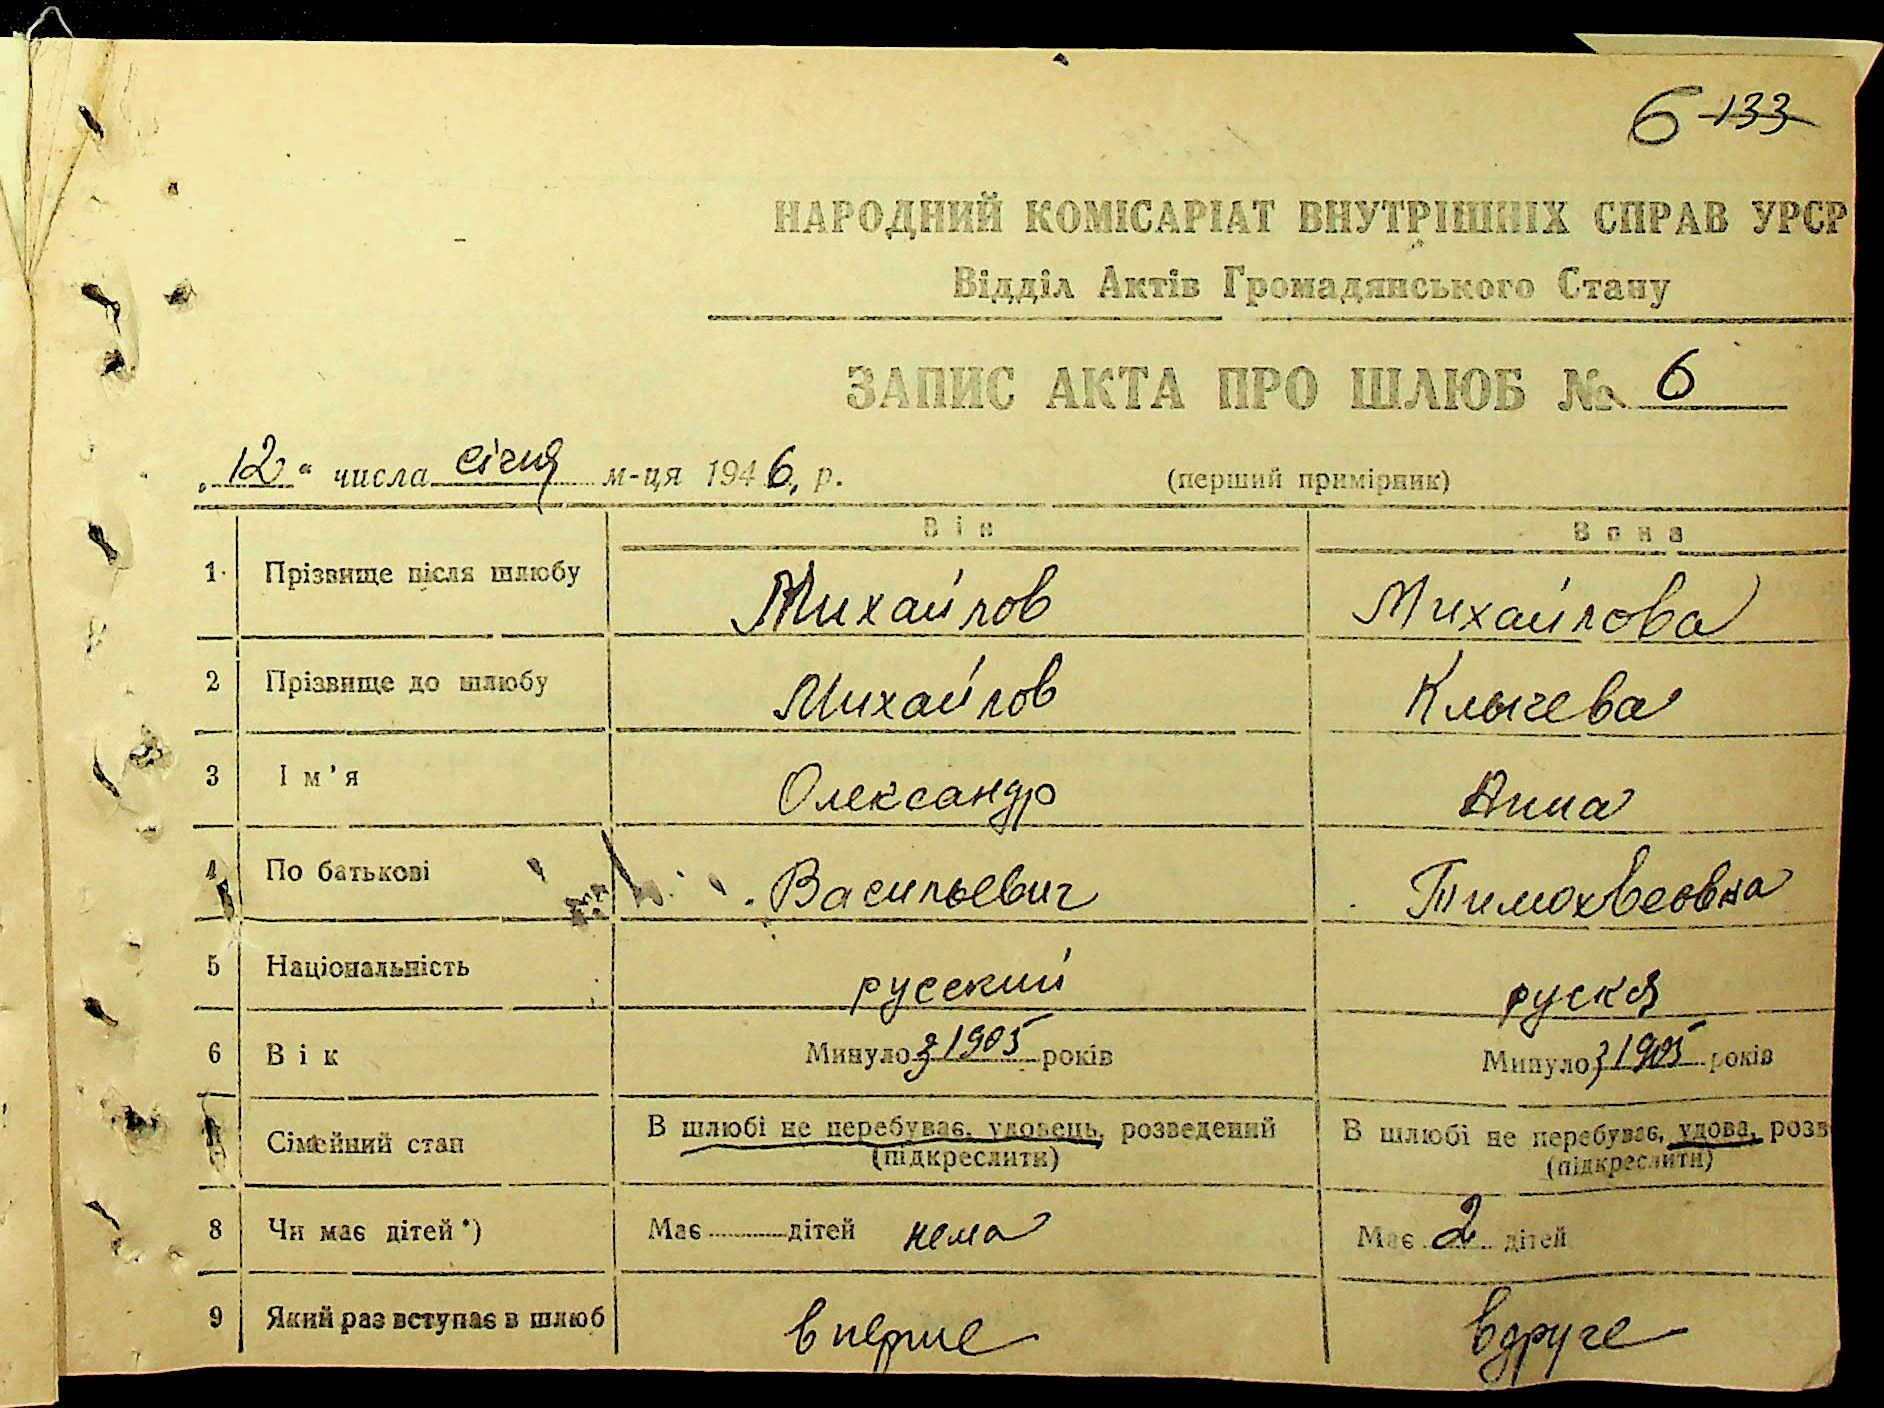 6 133
НАРОДНИЙ КОМІСАРІАТ ВНУТРІШНІХ СПРАВ УРСР
Відділ Актів Громадянського Стану
ЗАПИС АКТА ПРО ШЛЮБ № 6
„12“ числа січня м-ця 1946, р. (перший примірник)
Він Вона
1 Прізвище після шлюбу Михайлов Михайлова
2 Прізвище до шлюбу Михайлов Клычева
3 Ім'я Олександр Анна
4 По батькові Васильевич Тимохвеовна
5 Національність русский рускя
6 Вік Минуло з 1905 років Минуло з 1905 років
Сімейний стан В шлюбі не перебуває, удовець, розведений В шлюбі не перебуває, удова, розв
(підкреслити) (підкреслити)
8 Чи має дітей*) Має дітей нема Має 2 дітей
9 Який раз вступає в шлюб вперше вдруге